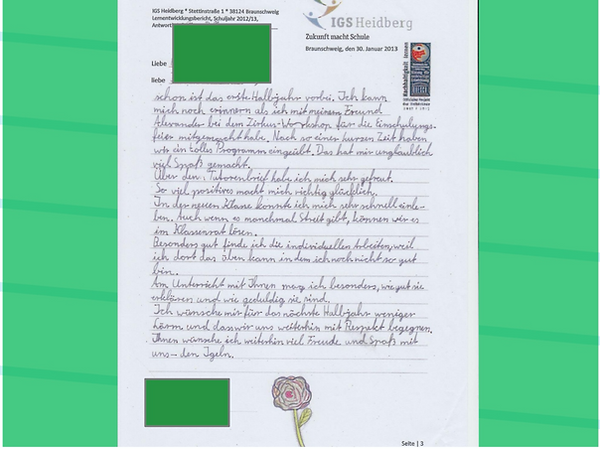 IGS Heidberg * Stettinstraße 1 * 38124 Braunschweig
Lernentwicklungsbericht, Schuljahr 2012/13,
Antwort
IGS Heidberg
Zukunft macht Schule
Braunschweig, den 30. Januar 2013
Liebe
liebe
schon ist das erste Halbjahr vorbei. Ich kann
mich noch erinnern als ich mit meinem Freund
Alexander bei dem Zirkus-Workshop für die Einschulungs-
feier mitgemacht habe. Nach so einer kurzen Zeit haben
wir ein tolles Programm eingeübt. Das hat mir unglaublich
viel Spaß gemacht.
Über den Tutorenbrief habe ich mich sehr gefreut.
So viel positives macht mich richtig glücklich.
In der neuen Klasse konnte ich mich sehr schnell einle-
ben. Auch wenn es manchmal Streit gibt, können wir es
im Klassenrat lösen.
Besonders gut finde ich die individuellen Arbeiten, weil
ich dort das üben kann in dem ich noch nicht so gut
bin.
Am Unterricht mit Ihnen mag ich besonders, wie gut sie
erklären und wie geduldig sie sind.
Ich wünsche mir für das nächste Halbjahr weniger
Lärm und dass wir uns weiterhin mit Respekt begegnen.
Ihnen wünsche ich weiterhin viel Freude und Spaß mit
uns – den Igeln.
Seite | 3